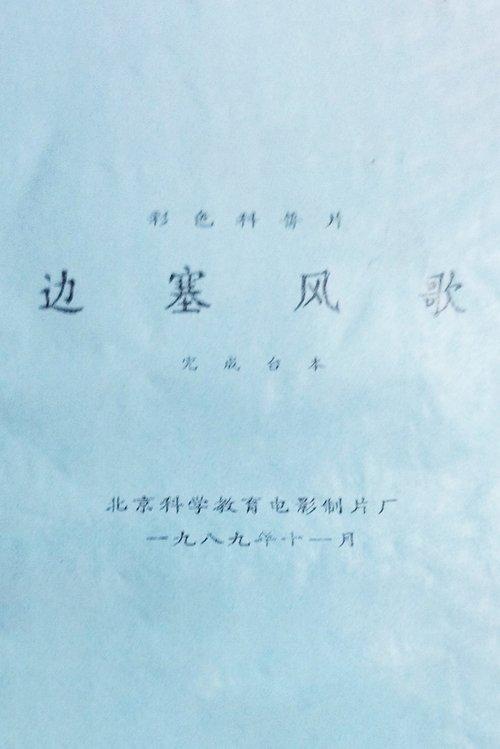 彩色科普片
边塞风歌
完成台本
北京科学教育电影制片厂
一九八九年十一月